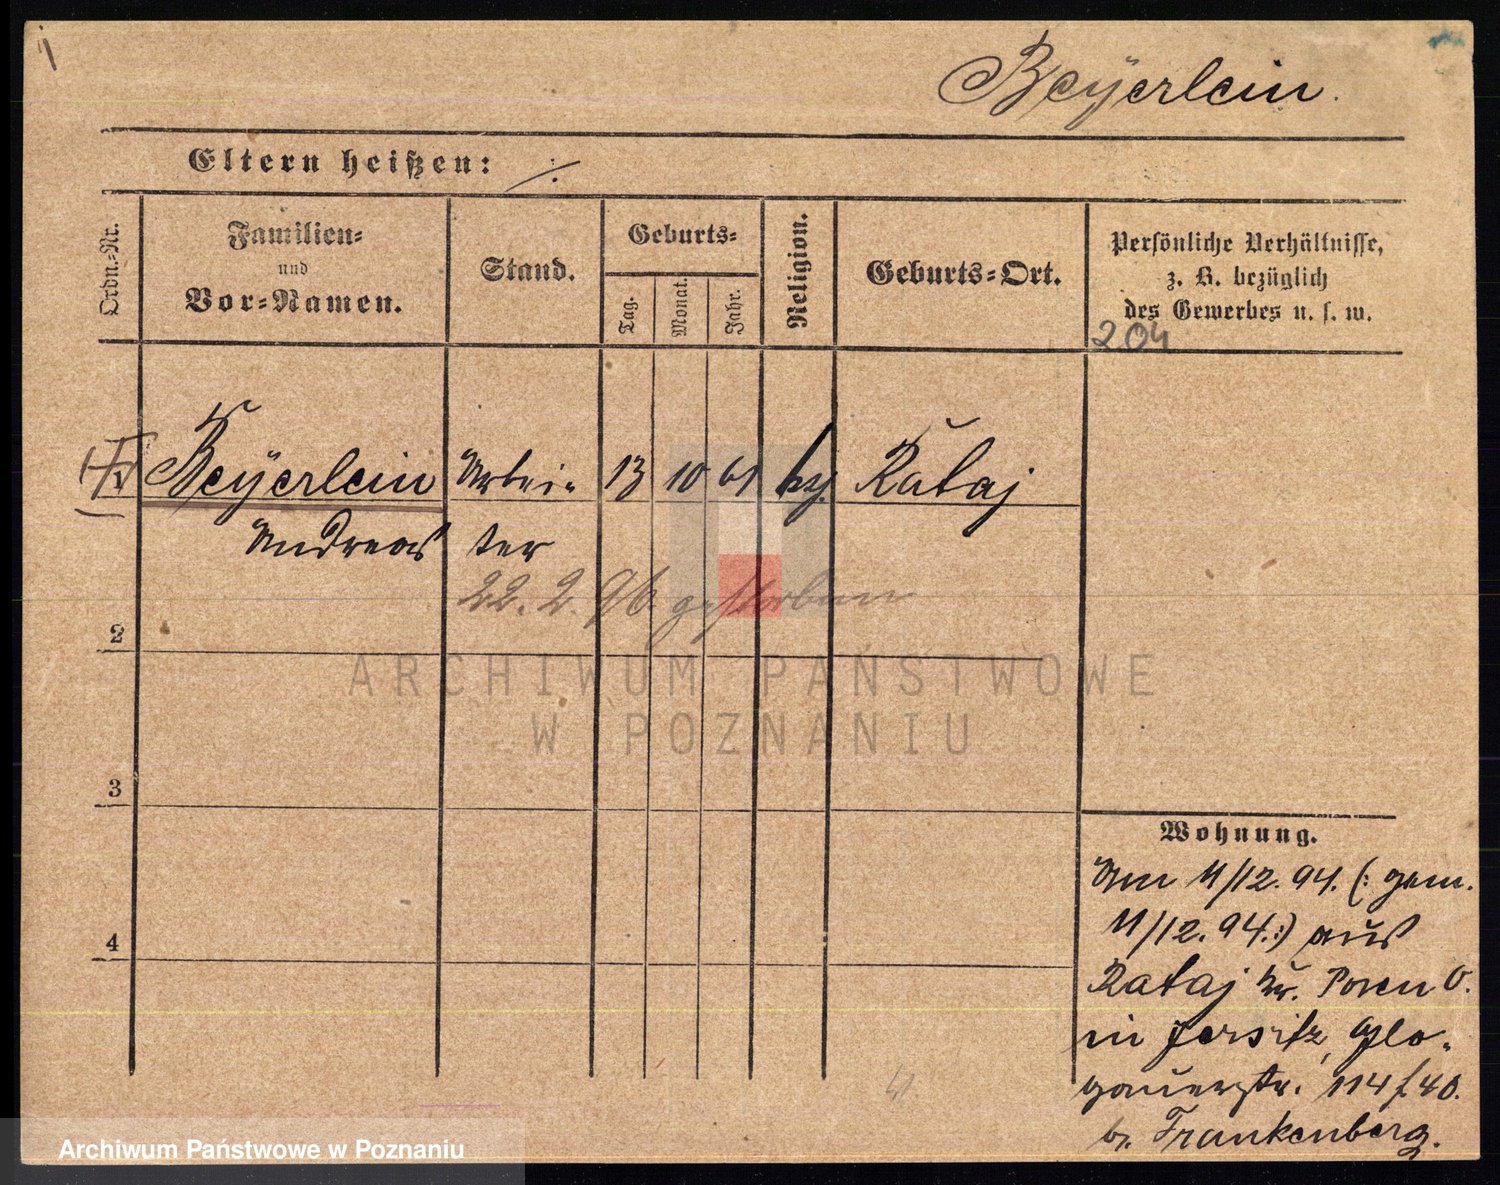 Beÿerlein.
Eltern heißen: ./.
Ordn.-Nr.
Familien-
und
Vor-Namen.
Stand.
Geburts-
Tag.
Monat.
Jahr.
Religion.
Geburts-Ort.
Persönliche Verhältnisse,
z. B. bezüglich
des Gewerbes u. s. w.
204
Beÿerlein Arbei- 13 10 61 Rataj
Andreas ter
22. 2. 96 gestorben
2
3
4
Wohnung.
Am 11/12. 94. (: gem.
11/12. 94.:) aus
Rataj Kr. Posen O.
in Jersitz, Glo-
gauerstr. 114
b. Frankenberg.
ARCHIWUM PAŃSTWOWE
W POZNANIU
Archiwum Państwowe w Poznaniu